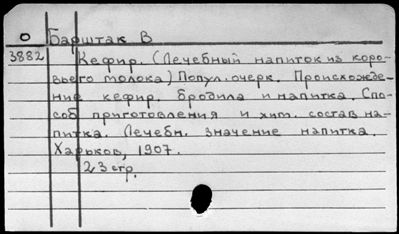 О Барштак В
3882 Кефир. (Лечебный напиток из коро-
вьего молока) Попул. очерк. Происхожде-
ние кефир. бродила и напитка. Спо-
соб приготовления и хим. состав на-
питка. Лечебн. значение напитка.
Харьков, 1907.
23 стр.